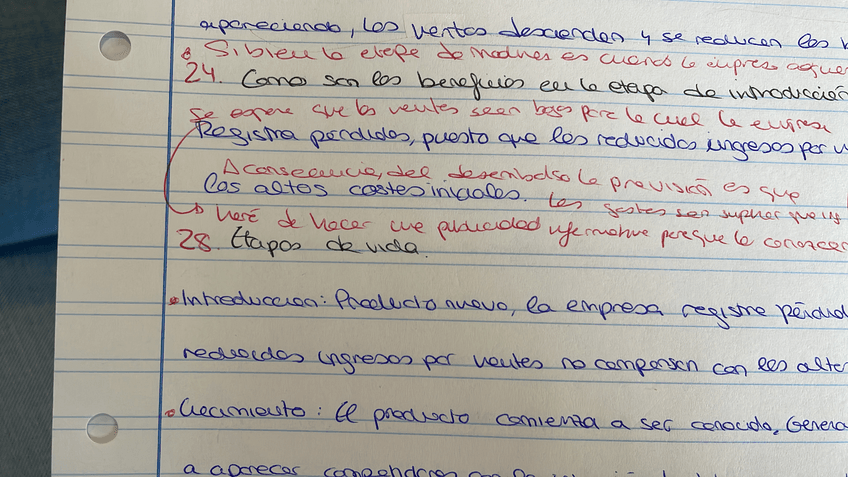 apareciendo, las ventas descienden y se reducen los
Si bien la etapa de madurez es cuando la empresa
24. Como son los beneficios en la etapa de introducción
se espera que las ventas sean bajas para la cual la empresa
Registra pérdidas, puesto que los reducidos ingresos por
A consecuencia, del desembolso la previsión es que
los altos costes iniciales. Los gastos son
de hacer una publicidad informativa para que la conozcan
28. Etapas de vida.
Introduccion: Producto nuevo, la empresa registra
reducidos ingresos por ventas no compensan con los
Crecimiento: El producto comienza a ser conocido,
a aparecer competidores